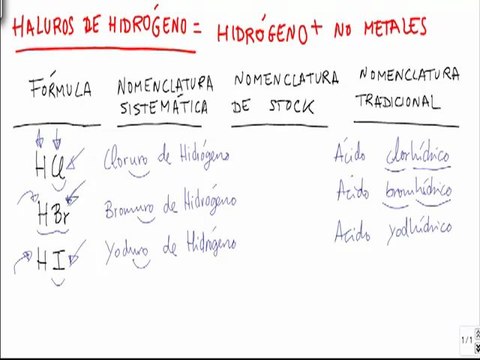 HALUROS DE HIDRÓGENO = HIDRÓGENO + NO METALES
FÓRMULA NOMENCLATURA SISTEMÁTICA NOMENCLATURA DE STOCK NOMENCLATURA TRADICIONAL
HCl Cloruro de Hidrógeno Ácido clorhídrico
HBr Bromuro de Hidrógeno Ácido bromhídrico
HI Yoduro de Hidrógeno Acido yodhídrico
1/1